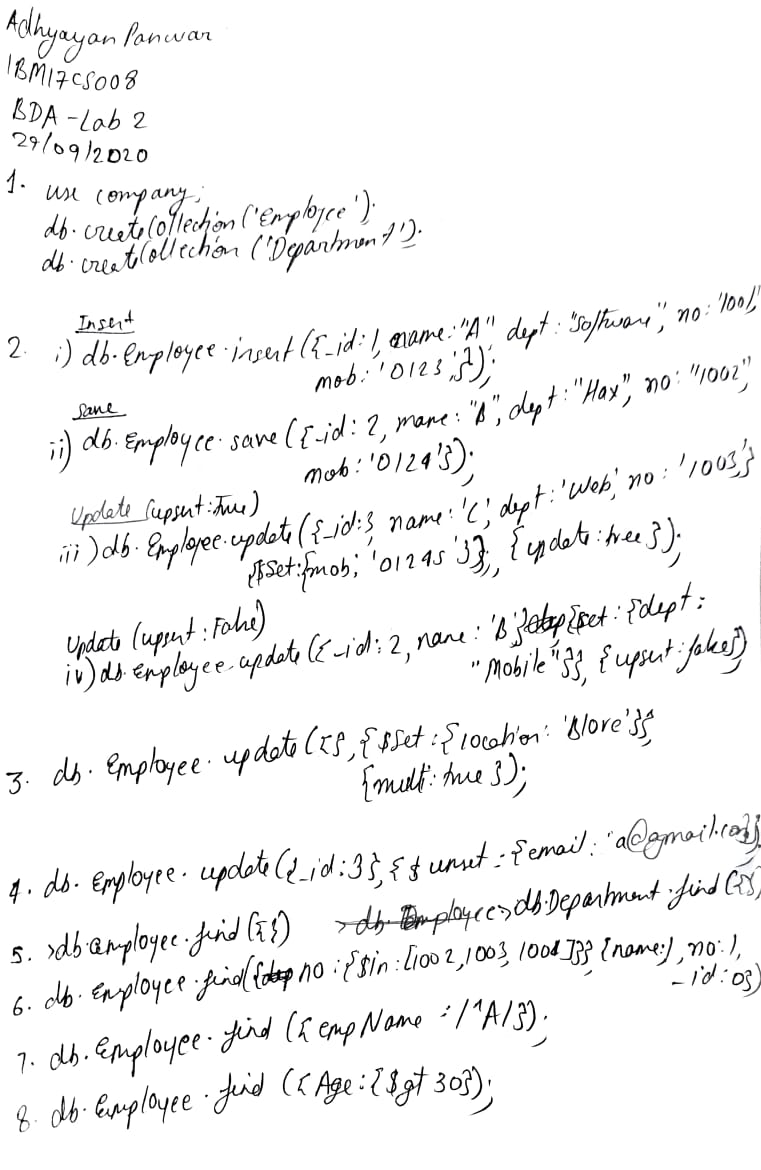 Adhyayan Panwar
1BM17CS008
BDA - Lab 2
29/09/2020
1. use company;
db.createCollection('Employee');
db.createCollection('Department');
Insert
2. i) db.Employee.insert({_id:1, name:"A" dept:"Software", no:'1001',
mob:'0123'});
Save
ii) db.Employee.save({_id:2, mane:"B", dept:"Hax", no:"1002",
mob:'0124'});
Update (upsert:True)
iii) db.Employee.update({_id:3, name:'C', dept:'Web', no:'1003'}
{$Set:{mob; '01245'}}, {update:tree});
Update (upsert:False)
iv) db.Employee.update({_id:2, name:'B'}{set:{dept:
"Mobile"}}, {upsert:false})
3. db.Employee.update({}, {$Set:{location:'Blore'}}
{multi:true});
4. db.Employee.update({_id:3}, {$unset:{email:'a@gmail.com}}
5. >db.employee.find({}) >db.Employee >db.Department.find({}),
6. db.Employee.find({no:{$in:[1002,1003,1004]}} {name:1, no:1,
_id:0})
7. db.Employee.find({empName:/^A/});
8. db.Employee.find({Age:{$gt 30});